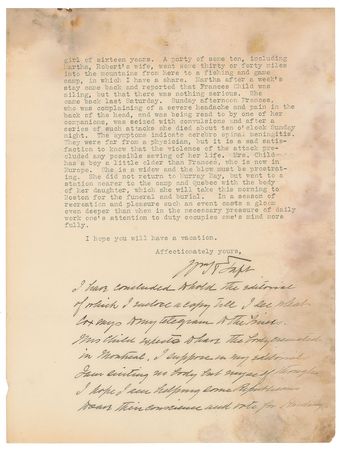 girl of sixteen years. A party of some ten, including
Martha, Robert's wife, went some thirty or forty miles
into the mountains from here to a fishing and game
camp, in which I have a share. Martha after a week's
stay came back and reported that Frances Child was
ailing, but that there was nothing serious. She
came back last Saturday. Sunday afternoon Frances,
who was complaining of a severe headache and pain in
the back of the head, and was being read to by one of her
companions, was seized with convulsions and after a
series of such attacks she died about ten o'clock Sunday
night. The symptoms indicate cerebro spinal meningitis.
They were far from a physician, but it is a sad satis-
faction to know that the violence of the attack pre-
cluded any possible saving of her life. Mrs. Child
has a boy a little older than Frances, who is now in
Europe. She is a widow and the blow must be prostrat-
ing. She did not return to Murray Bay, but went to a
station nearer to the camp and Quebec with the body
of her daughter, which she will take this morning to
Boston for the funeral and burial. In a season of
recreation and pleasure such an event casts a gloom
even deeper than when in the necessary pressure of daily
work one's attention to duty occupies one's mind more
fully.
I hope you will have a vacation.
Affectionately yours,
Wm H Taft
I have concluded to hold the editorial
of which I enclose a copy till I see what
Cox says to my telegram to the
Mrs Child expects to have the body cremated
in Montreal. I suppose in my editorial
I am suiting no body but myself though
I hope I am helping some Republican
their conscience and vote for Harding